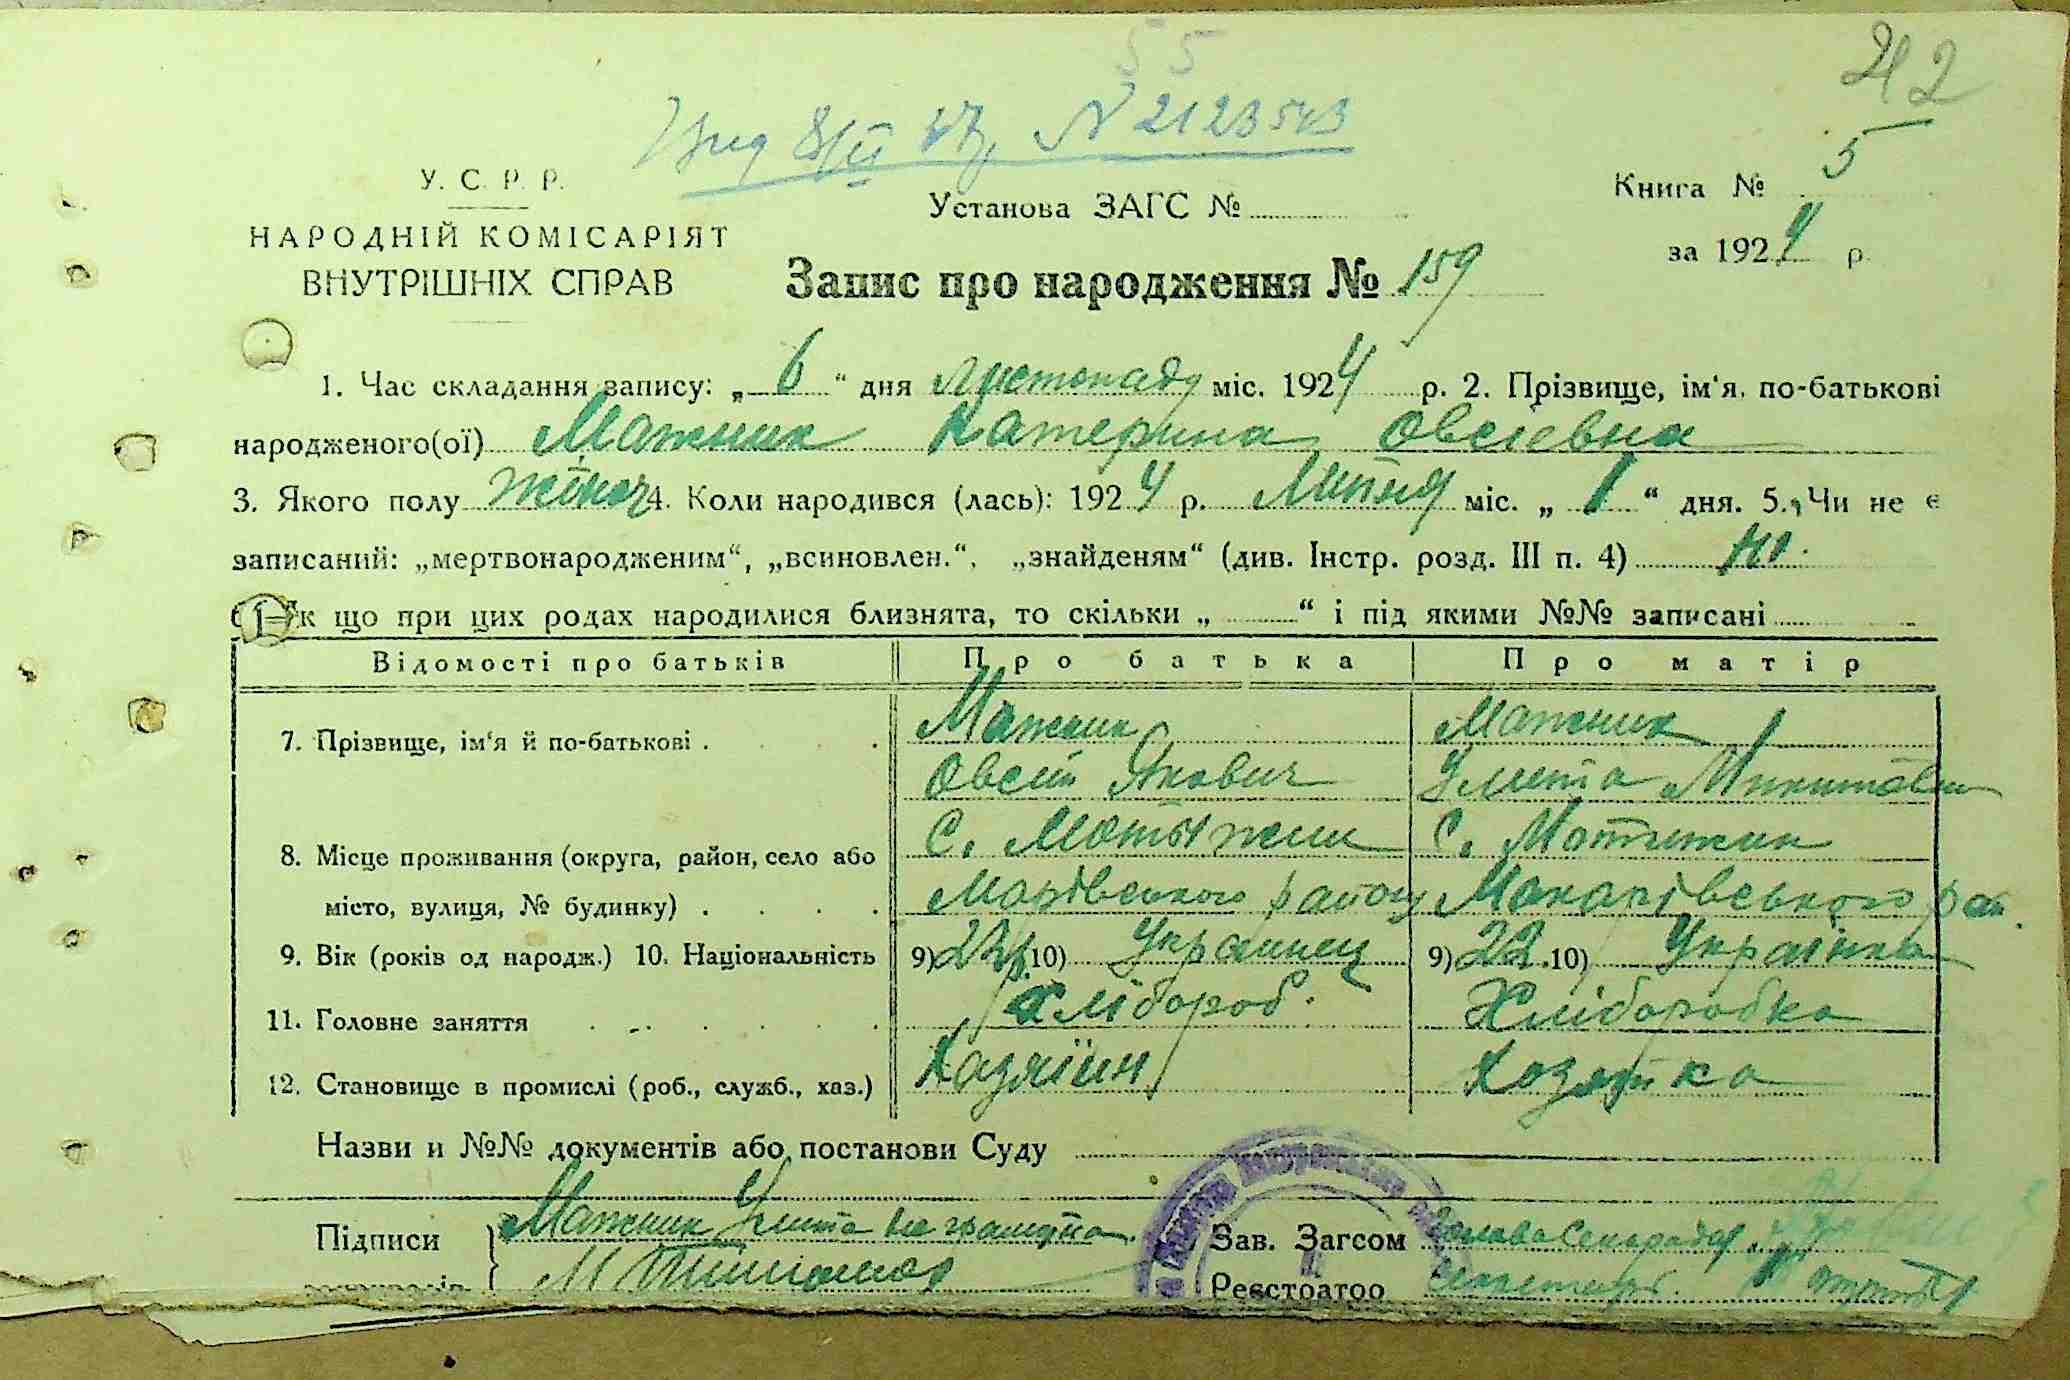 55
42
Вид 8/II 47, N 2123543
У. С. Р. Р.
НАРОДНІЙ КОМІСАРІЯТ
ВНУТРІШНІХ СПРАВ
Установа ЗАГС №
Книга № 5
за 1924 р.
Запис про народження № 159
1. Час складання запису: „ 6 “ дня листопаду міс. 1924 р. 2. Прізвище, ім‘я, по-батькові
народженого(ої) Мажник Катерина Овсіевна
3. Якого полу жіноч 4. Коли народився (лась): 1924 р. Липня міс. „ 1 “ дня. 5. Чи не є
записаний: „мертвонародженим“, „всиновлен.“, „знайденям“ (див. Інстр. розд. III п. 4) ні.
к що при цих родах народилися близнята, то скільки „ “ і під якими №№ записані
Відомості про батьків Про батька Про матір
7. Прізвище, ім‘я й по-батькові . Мажник Мажник
Овсій Якович Улита Микитовна
8. Місце проживання (округа, район, село або С. Мотыжин С. Мотижин
місто, вулиця, № будинку) . Марівського району Макарівського рай.
9. Вік (років од народж.) 10. Національність 9) 22 10) Украинец 9) 22. 10) Українка
11. Головне заняття Хлібороб. Хліборобка
12. Становище в промислі (роб., служб., хаз.) Хазяїин Хозяйка
Назви и №№ документів або постанови Суду
Підписи Мажник Улита не грамотна. Зав. Загсом Голова Сельради
Реєстратор Секретарь